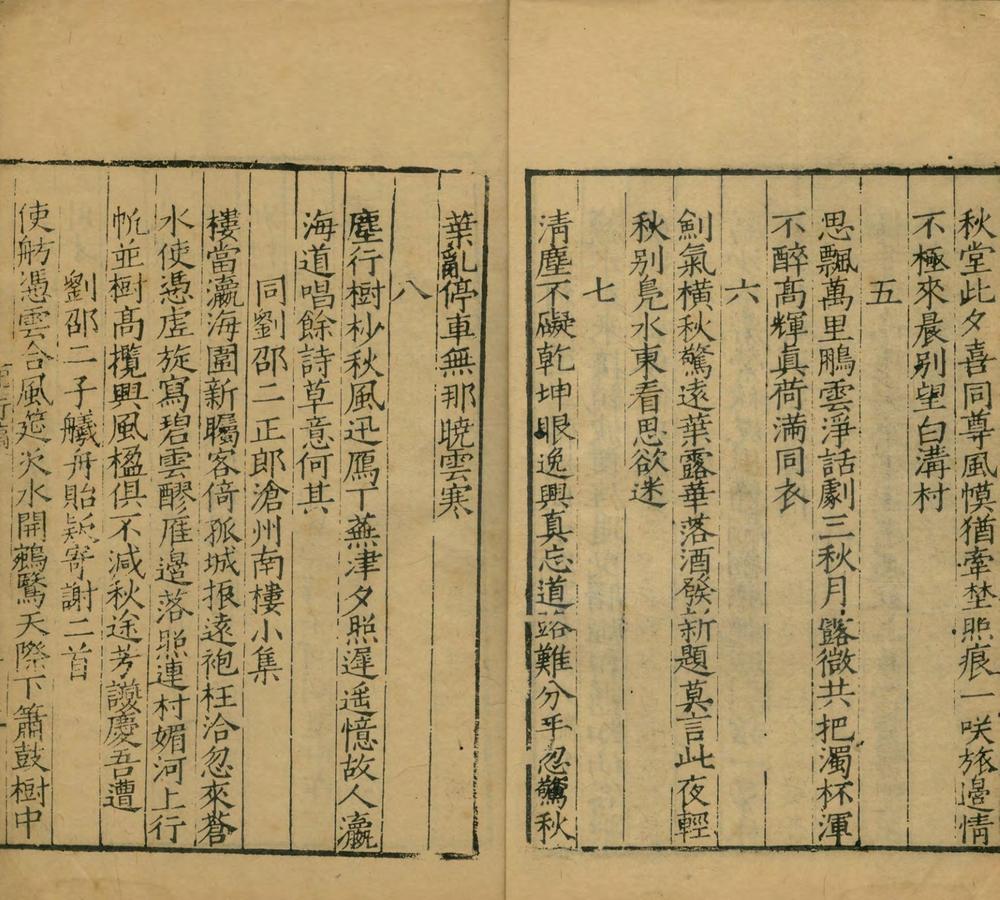 秋堂此夕喜同尊風幙猶牽埜照痕一咲旅邊情
不極來晨别望白溝村
五
思飄萬里鵬雲淨話劇三秋月露微共把濁杯渾
不醉髙輝真荷满同衣
六
劍氣橫秋驚遠葉露華落酒發新題莫言此夜輕
秋别鳬水東看思欲迷
七
淸塵不礙乾坤眼逸興真忘道路難分手忽驚秋
葉亂停車無那曉雲寒
八
塵行樹杪秋風迅鴈丅蕪津夕照遲遥憶故人瀛
海道唱餘詩草意何其
同劉邵二正郎滄州南樓小集
樓當瀛海圍新矚客倚孤城振遠袍枉洽忽來蒼
水使憑虚旋寫碧雲醪雁邊落照連村媚河上行
帆並樹髙攬興風楹俱不減秋途芳讌慶吾遭
劉邵二子艤舟貽寄謝二首
使舫憑雲合風筵火水開鵝驚天際下簫鼓樹中